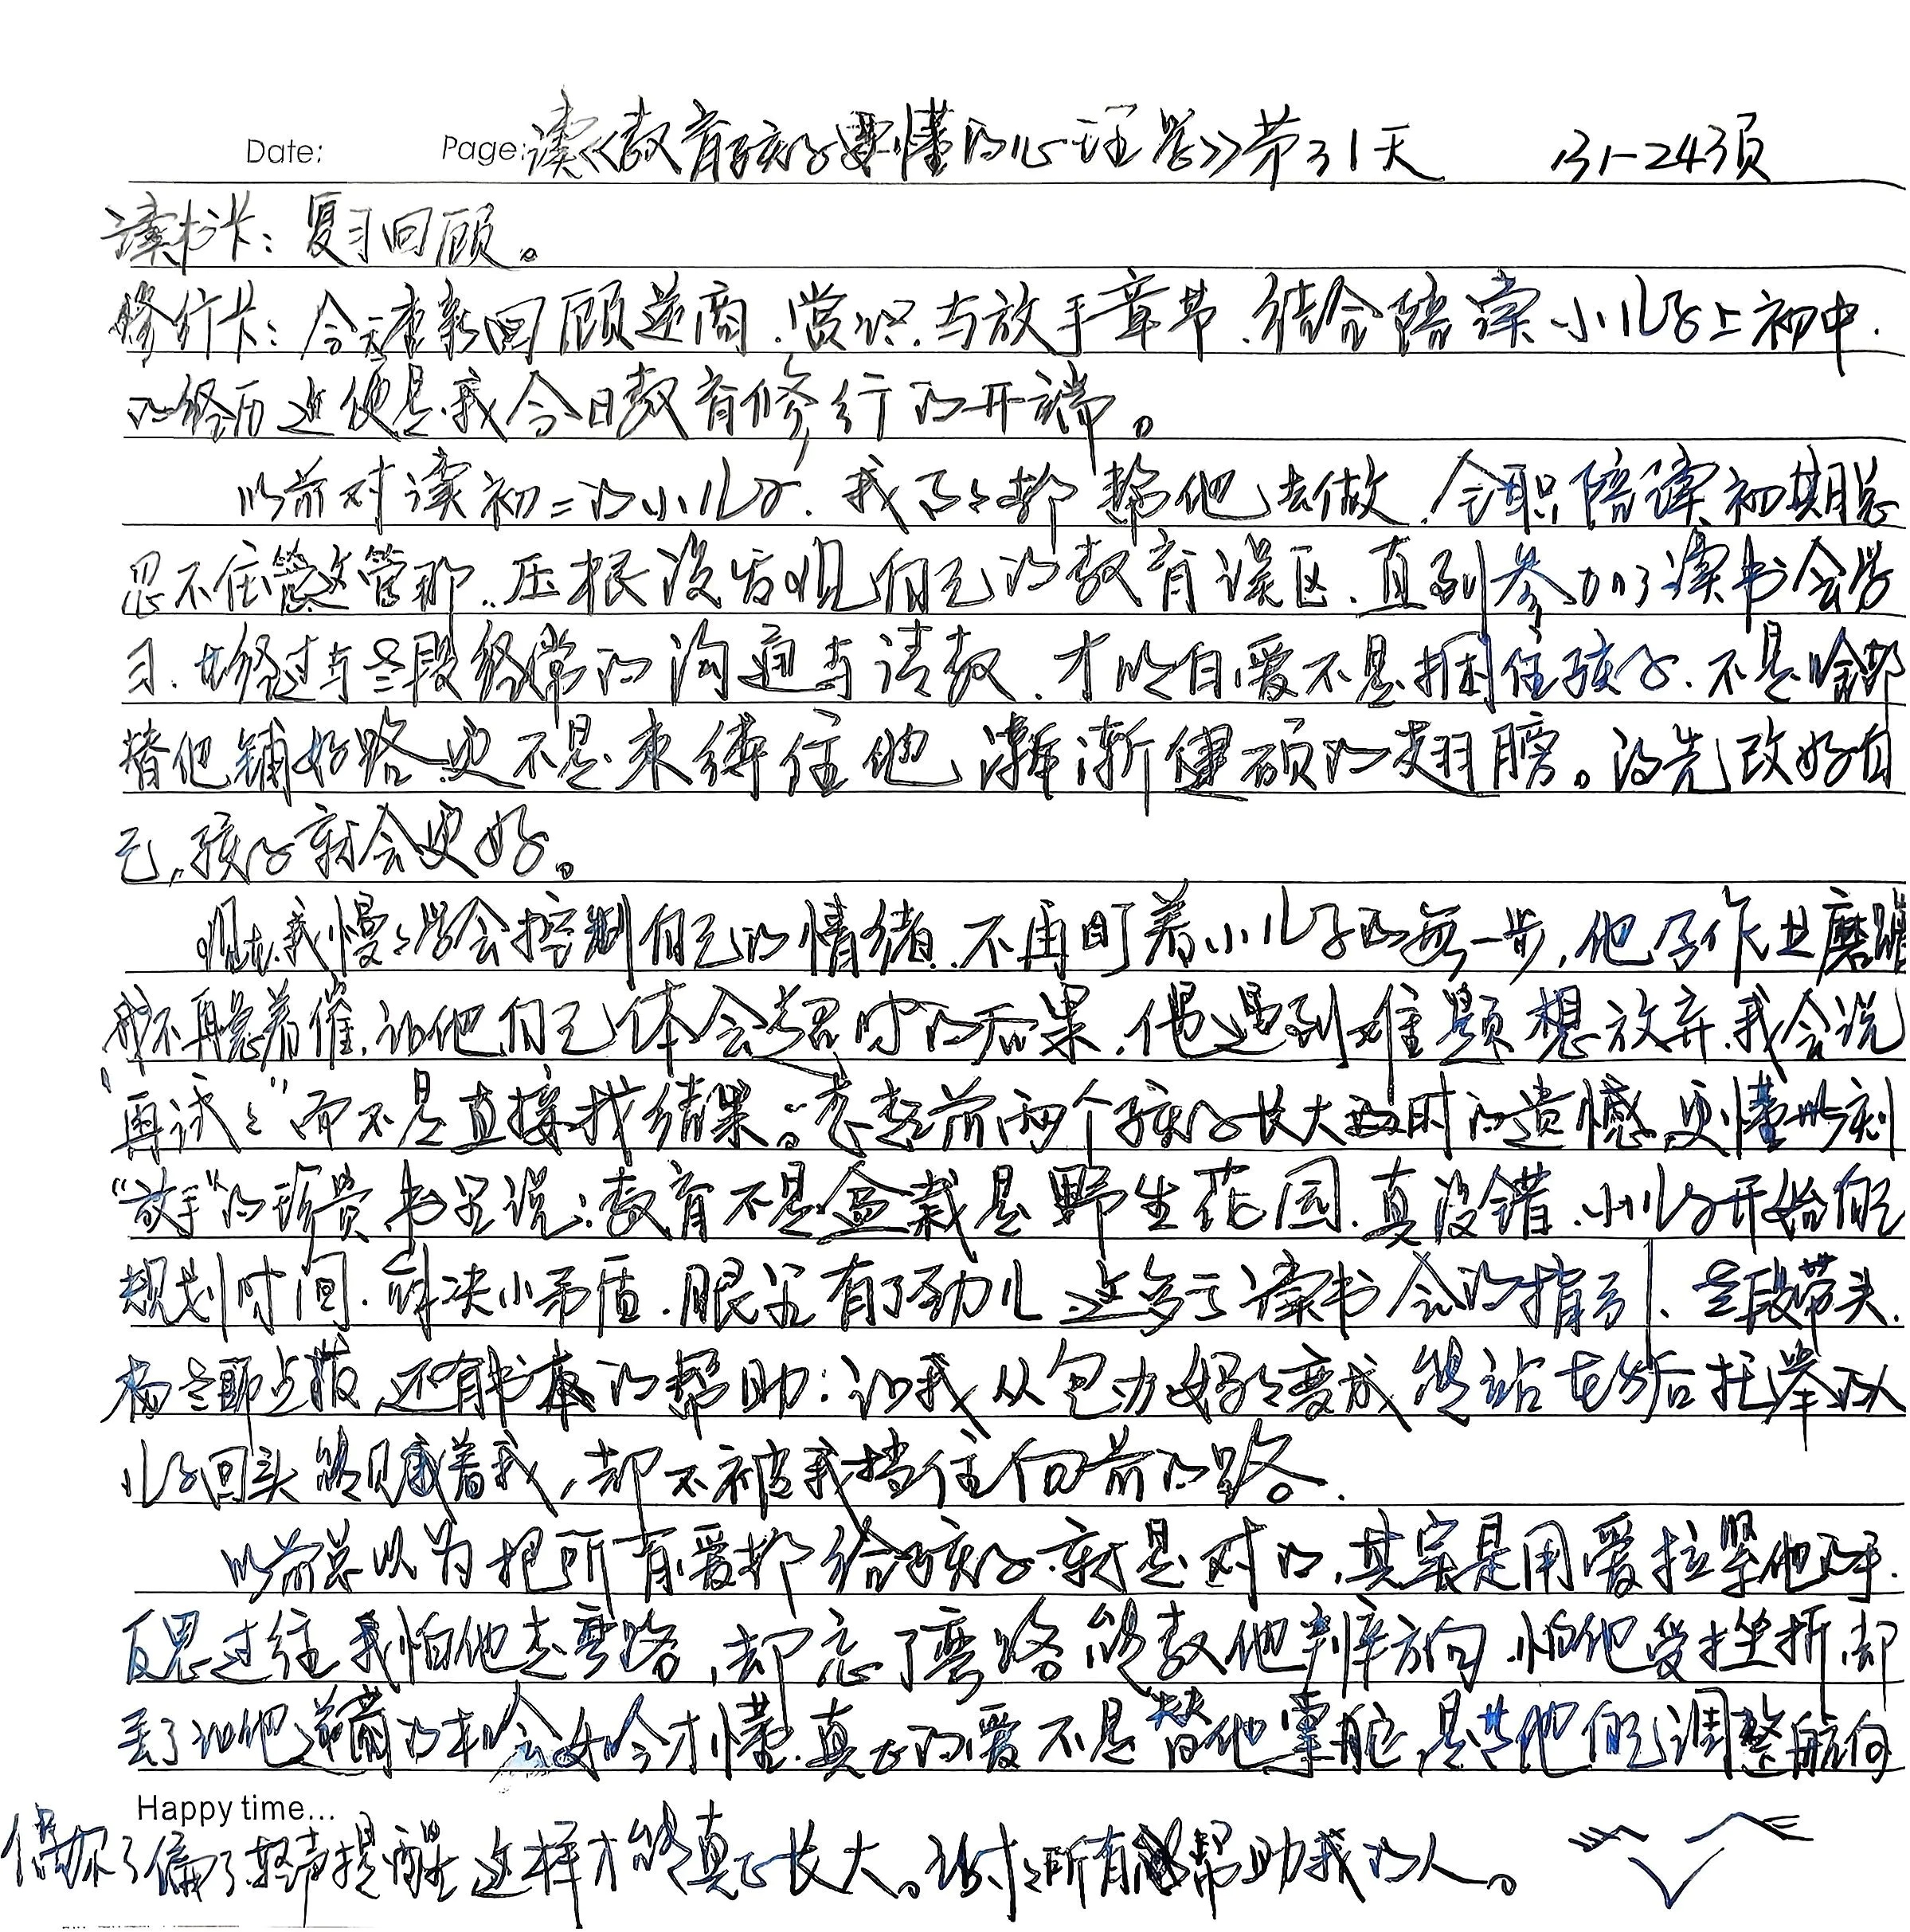 Date: Page: 读《教育孩子要懂的心理学》第31天 131-243页
读书卡：复习回顾。
修行卡：今天重新回顾逆商、赏识、与放手章节、结合陪读小儿子上初中
的经历这便是我今日教育修行的开端。
以前对读初二的小儿子、我百分都帮他去做、全职陪读初期总
忍不住管这管那、压根没发现自己的教育误区、直到参加了读书会学
习、也经过与老段经常的沟通与请教、才明白爱不是捆住孩子、不是啥都
替他铺好路更不是来缚住他渐渐健硕的翅膀。得先改好自
己，孩子就会更好。
现在我慢慢学会控制自己的情绪、不再盯着小儿子的每一步，他写作业磨蹭
我不再急着催、让他自己体会超时的后果、偶遇到难题想放弃、我会说
“再试试”而不是直接找结果。想起前两个孩子长大时的遗憾、更懂此刻
“放手”的珍贵、书里说：教育不是盆栽是野生花园、真没错、小儿子开始自己
规划时间、解决小矛盾、眼里有了劲儿这多亏读书会的指引、老段带头、
杨老师点拨还有书本的帮助：让我从包办妈妈变成能站在身后托举的人
儿子回头能见着我，却不被我挡住向前的路．
以前总以为把所有爱都给孩子就是对的，其实是用爱拉紧他的手．
反思过往我怕他走弯路，却忘了弯路能教他辨方向、怕他受挫折却
丢了让他逆商的机会如今才懂、真正的爱不是替他掌舵是共他自己调整航向
偏了轻声提醒这样才能真正长大。谢谢所有帮助我的人。
Happy time...